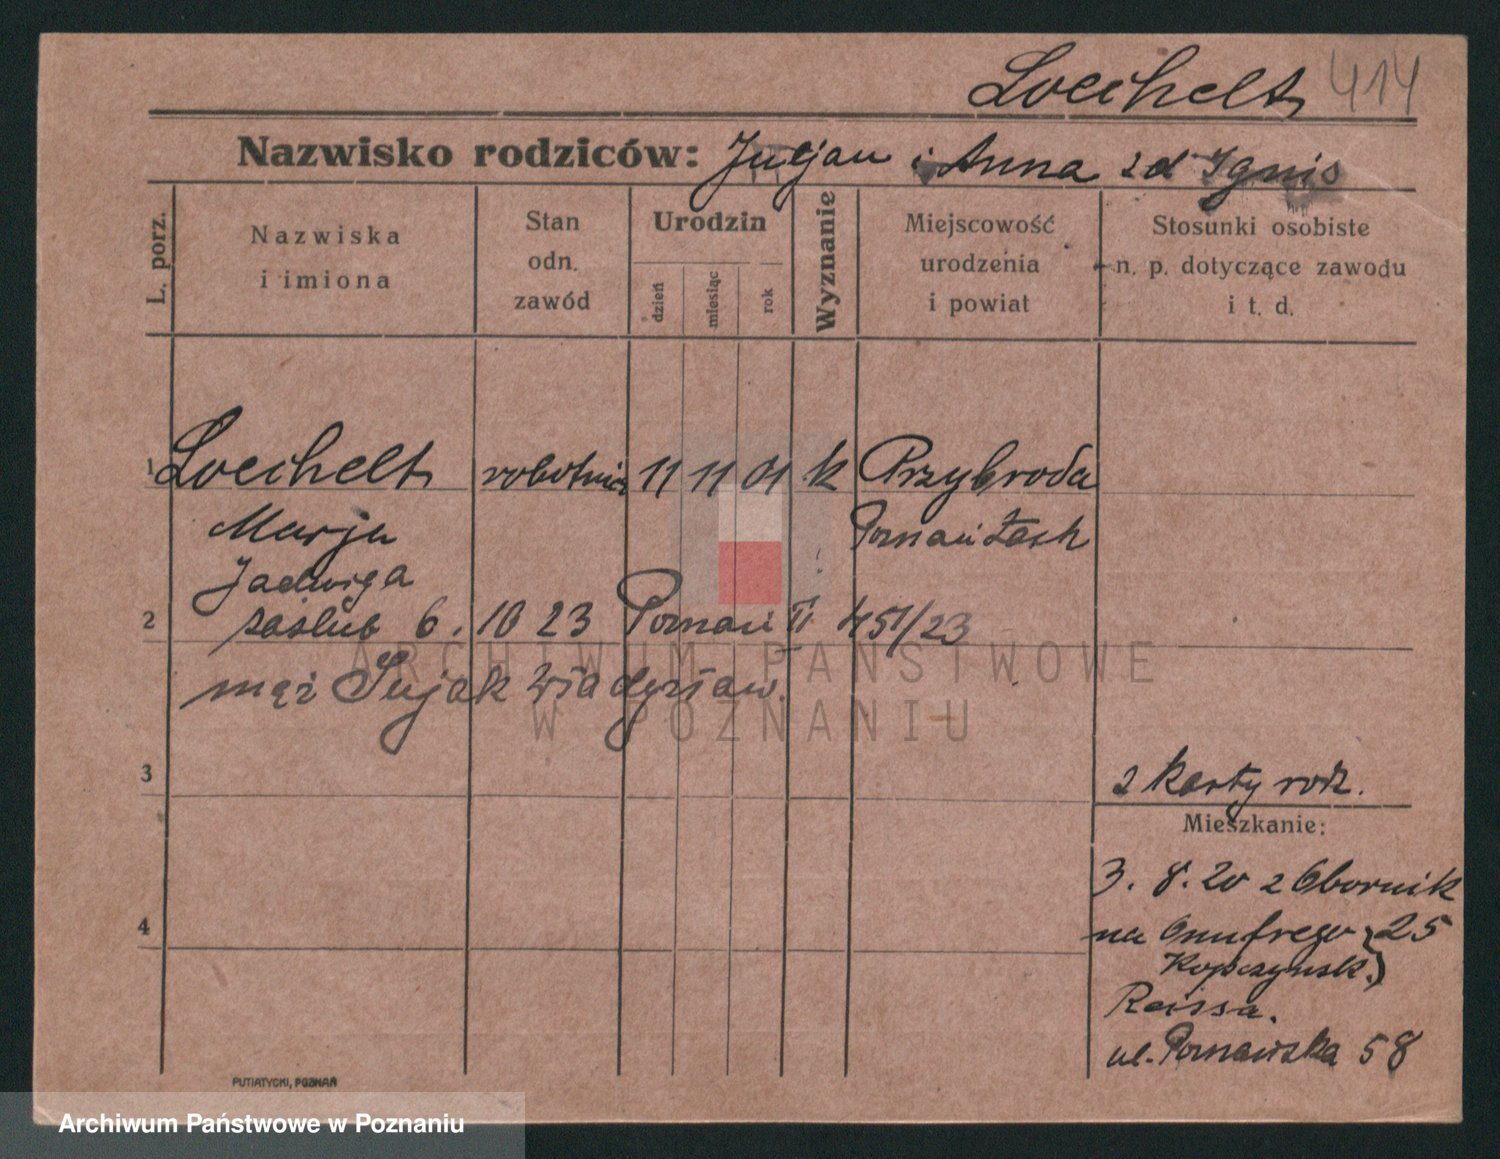 Loechelt 414
Nazwisko rodziców: Juljan i Anna z d Ignis
L. porz.
Nazwiska
i imiona
Stan
odn.
zawód
Urodzin
dzień
miesiąc
rok
Wyznanie
Miejscowość
urodzenia
i powiat
Stosunki osobiste
n. p. dotyczące zawodu
i t. d.
1 Loechelt robotnica 11 11 01 k Przybroda
Marja Poznań Zach
Jadwiga
2 zaślub 6. 10 23 Poznań II 451/23
mąż Sujak Władysław.
3
2 karty rodz.
Mieszkanie:
3. 8. 20 z Obornik
4
na Onufrego 25
Kopczyńsk.
Reissa.
ul. Poznańska 58
PUTIATYCKI, POZNAŃ
ARCHIWUM PAŃSTWOWE
W POZNANIU
Archiwum Państwowe w Poznaniu